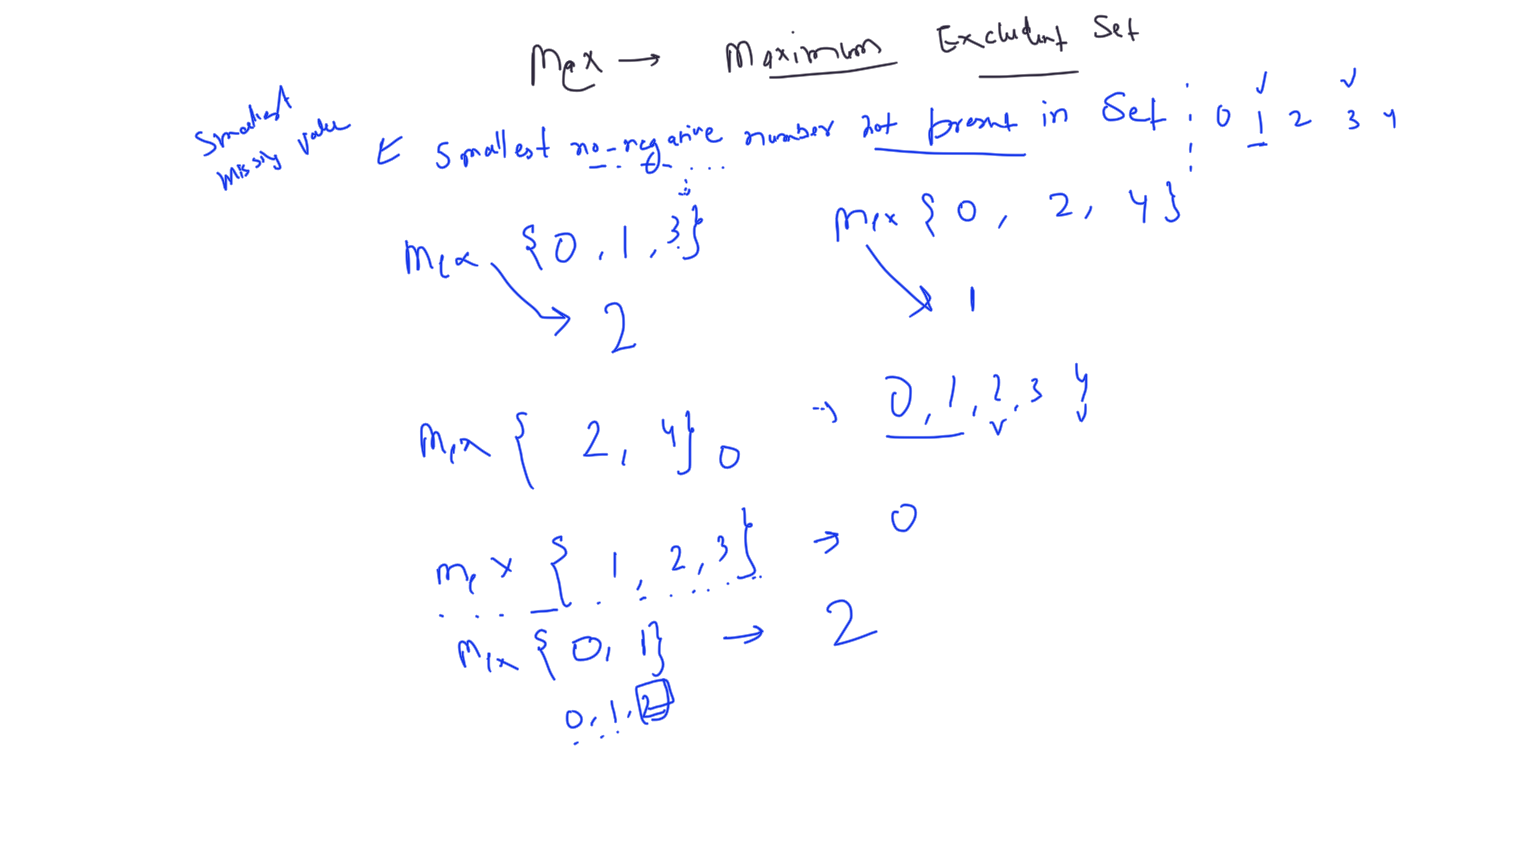 Mex → Maximum Excludent Set
Smallest missing value
← Smallest no-negative number not present in Set : 0 1 2 3 4
Mex {0, 1, 3}
→ 2
Mex {0, 2, 4}
→ 1
Mex { 2, 4} 0 → 0, 1, 2, 3 4
Mex { 1, 2, 3} → 0
Mex {0, 1} → 2
0, 1, 2